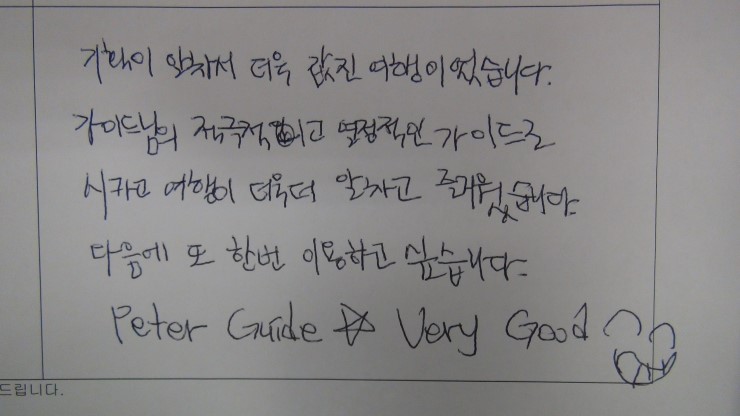 기획이 알차서 더욱 값진 여행이었습니다.
가이드님의 적극적이고 열정적인 가이드로
시카고 여행이 더욱더 알차고 즐거웠습니다.
다음에 또 한번 이용하고 싶습니다.
Peter Guide ☆ Very Good
드립니다.